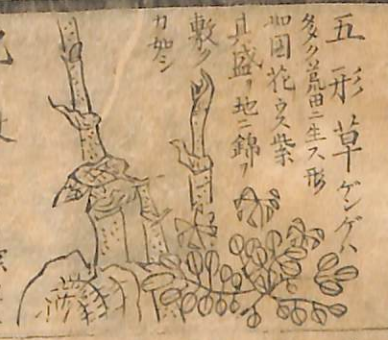 五形草 ゲンゲハ
多ク荒田ニ生ス形
如図花ウス紫
其盛ハ地ニ錦ヲ
敷ク
カ如シ